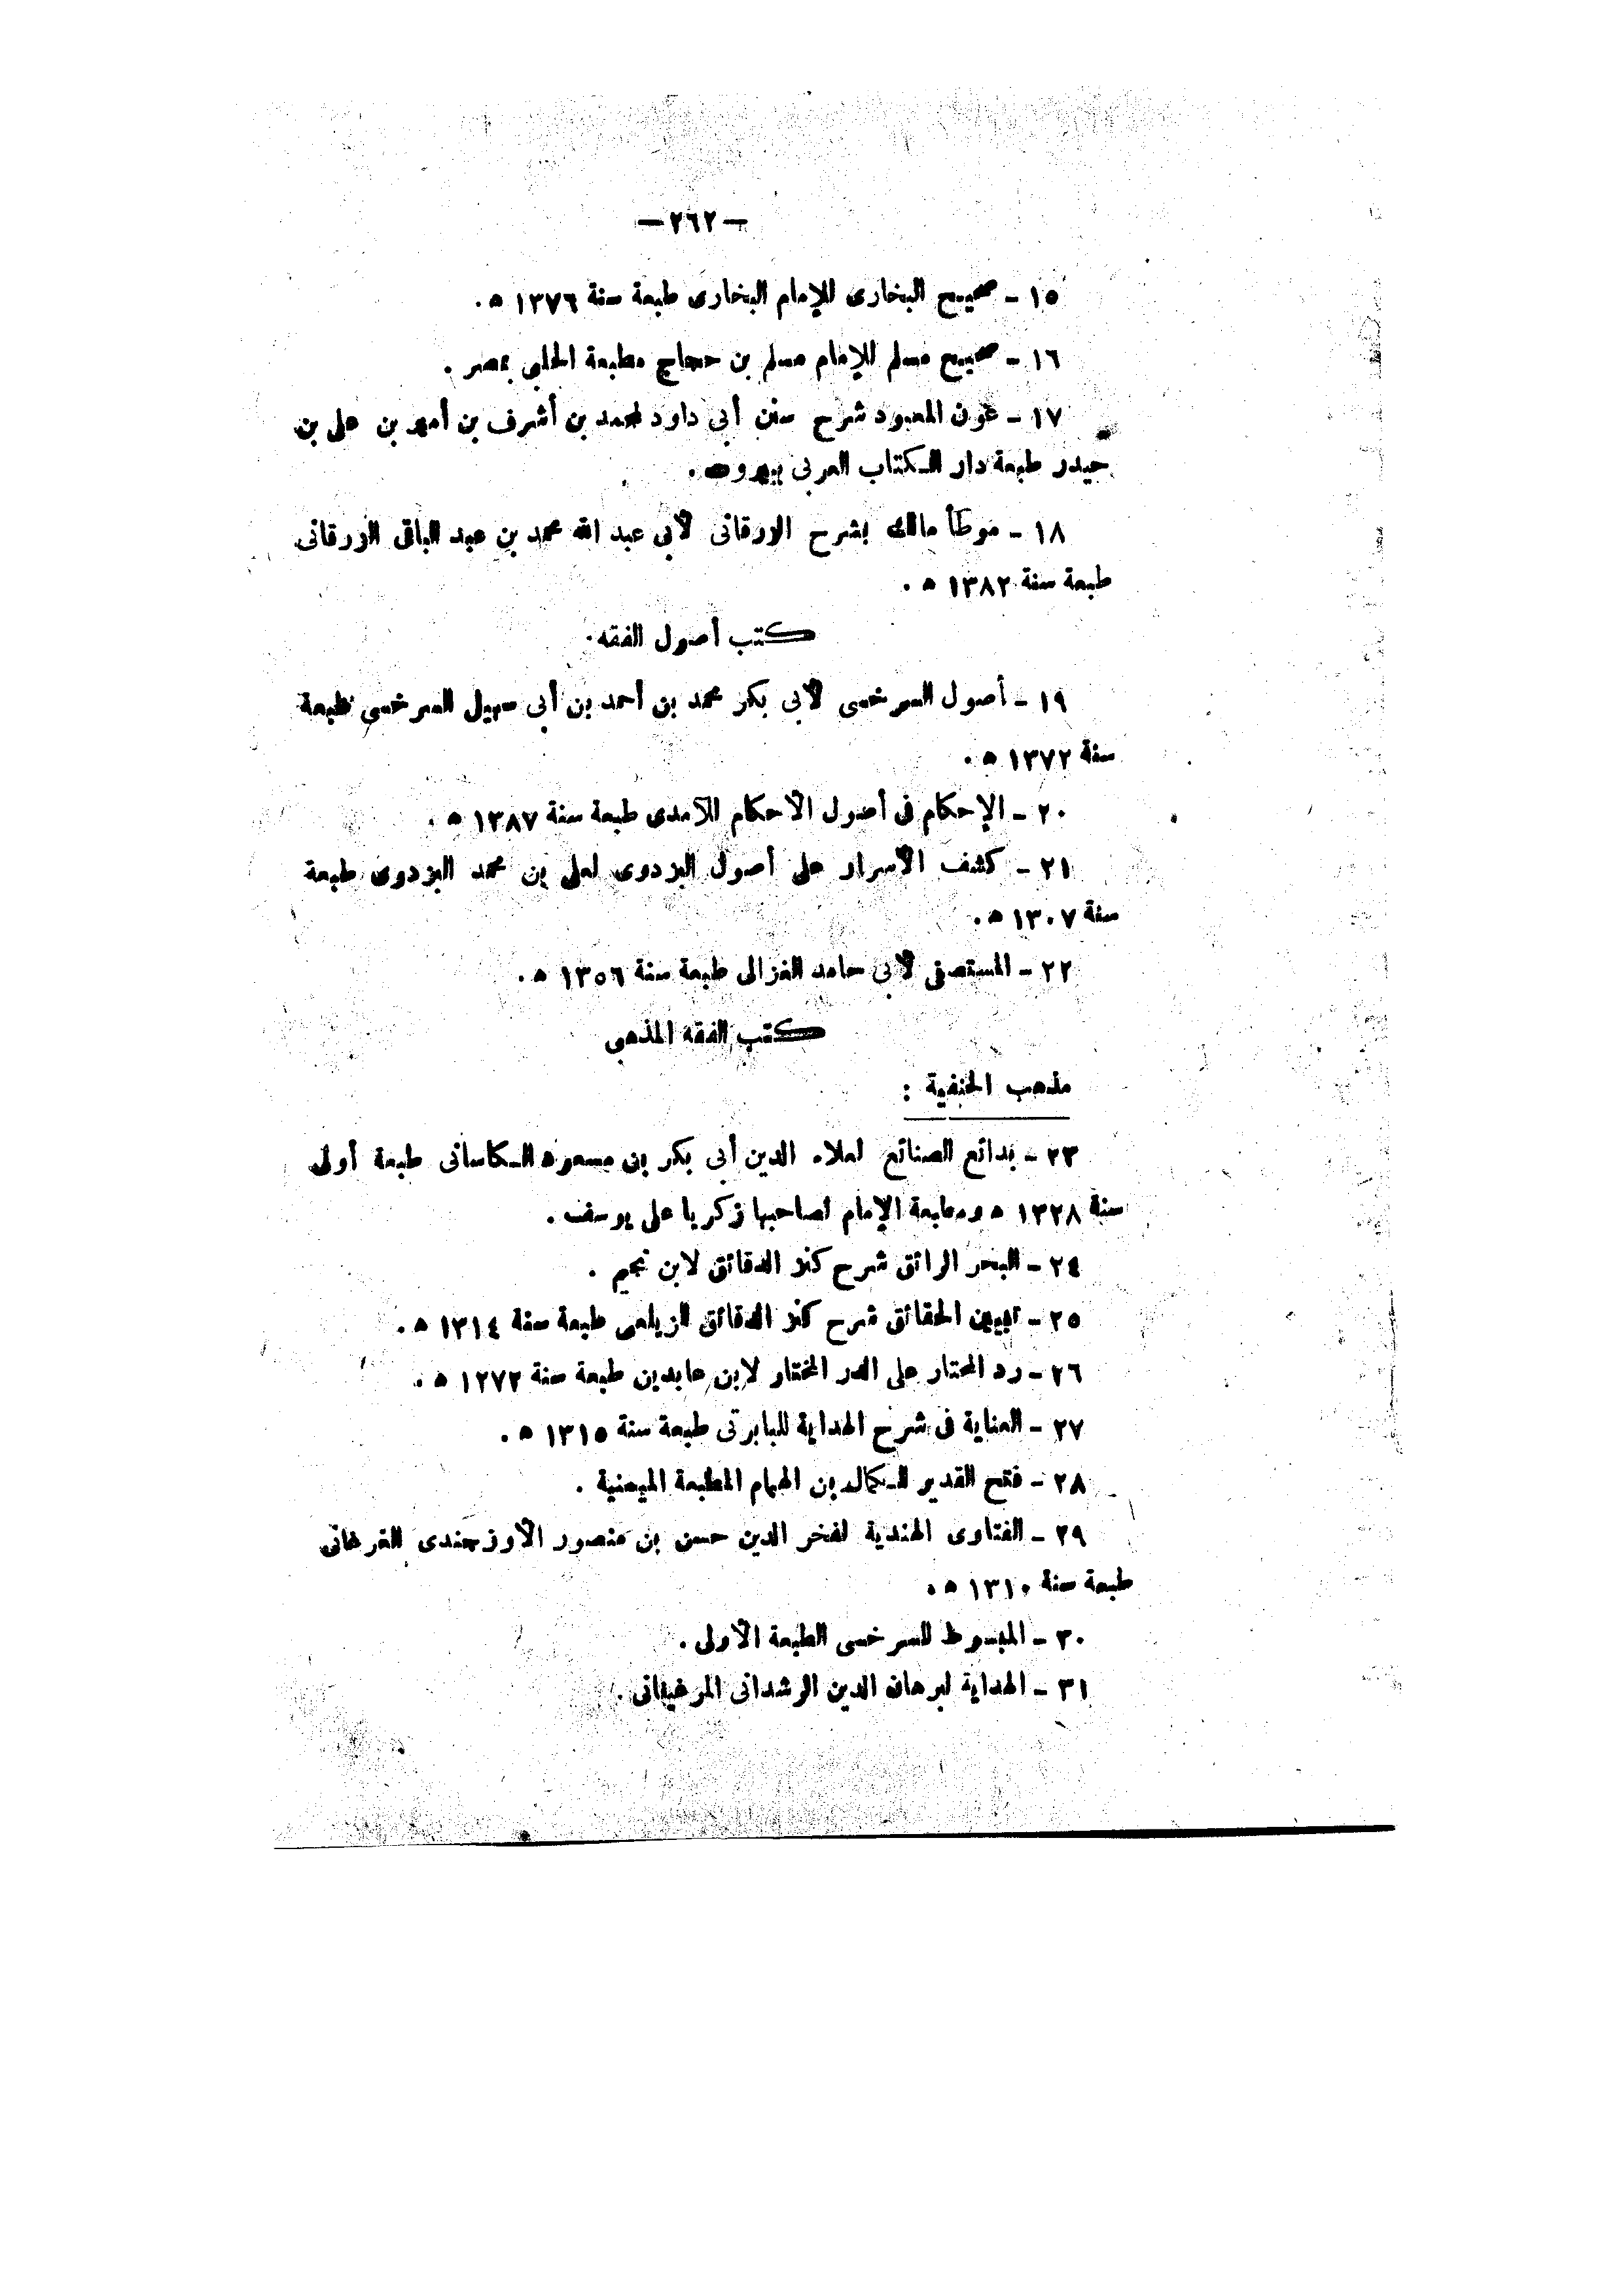 — ٢٦٢ —
١٥ - صحيح البخارى للإمام البخارى طبعة سنة ١٣٧٦ ه .
١٦ - صحيح مسلم للإمام مسلم بن حجاج مطبعة الحلبى بمصر .
١٧ - عون المعبود شرح سنن أبى داود لمحمد بن أشرف بن أمير بن على بن
حيدر طبعة دار الكتاب العربى بيروت .
١٨ - موطأ مالك بشرح الزرقانى لأبى عبد الله محمد بن عبد الباقى الزرقانى
طبعة سنة ١٣٨٢ ه .
كتب أصول الفقه .
١٩ - أصول السرخسى لأبى بكر محمد بن أحمد بن أبى سهيل السرخسى طبعة
سنة ١٣٧٢ ه .
٢٠ - الإحكام فى أصول الأحكام للآمدى طبعة سنة ١٣٨٧ ه .
٢١ - كشف الأسرار على أصول البزدوى لعلى بن محمد البزدوى طبعة
سنة ١٣٠٧ ه .
٢٢ - المستصفى لأبى حامد الغزالى طبعة سنة ١٣٥٦ ه .
كتب الفقه المذهبى
مذهب الحنفية :
٢٣ - بدائع الصنائع لعلاء الدين أبى بكر بن مسعود الكاسانى طبعة أولى
سنة ١٣٢٨ ه ومطبعة الإمام لصاحبها زكريا على يوسف .
٢٤ - البحر الرائق شرح كنز الدقائق لابن نجيم .
٢٥ - تبيين الحقائق شرح كنز الدقائق للزيلعى طبعة سنة ١٣١٤ ه .
٢٦ - رد المحتار على الدر المختار لابن عابدين طبعة سنة ١٢٧٢ ه .
٢٧ - العناية فى شرح الهداية للبابرتى طبعة سنة ١٣١٥ ه .
٢٨ - فتح القدير للكمال بن الهمام المطبعة الميمنية .
٢٩ - الفتاوى الهندية لفخر الدين حسن بن منصور الأوزجندى الفرغانى
طبعة سنة ١٣١٠ ه .
٣٠ - المبسوط للسرخسى الطبعة الأولى .
٣١ - الهداية لبرهان الدين الرشدانى المرغينانى .